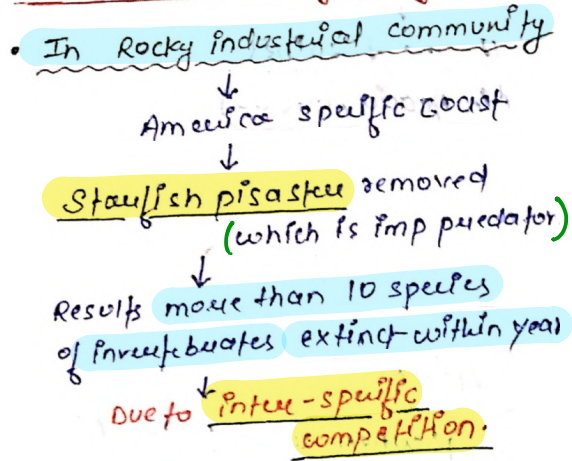 • In Rocky industerial community
↓
America spesific coast
↓
Starfish pisaster removed
(which is imp predator)
↓
Results more than 10 species
of invertebrates extinct within year
↓
Due to inter-spesific
competition.